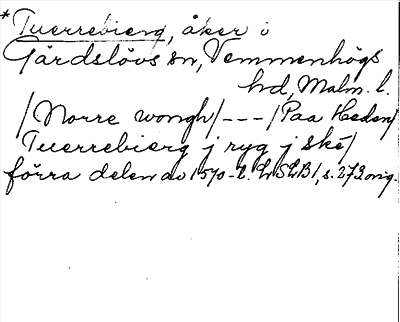 *Tuerrebierg, åker i
Gärdslövs sn, Vemmenhögs
hd, Malm. l.
/Norre wongh/ --- /Paa Heden/
Tuerrebierg j ryg j ske/
förra delen av 1570-t. LSLB1, s. 272 orig.